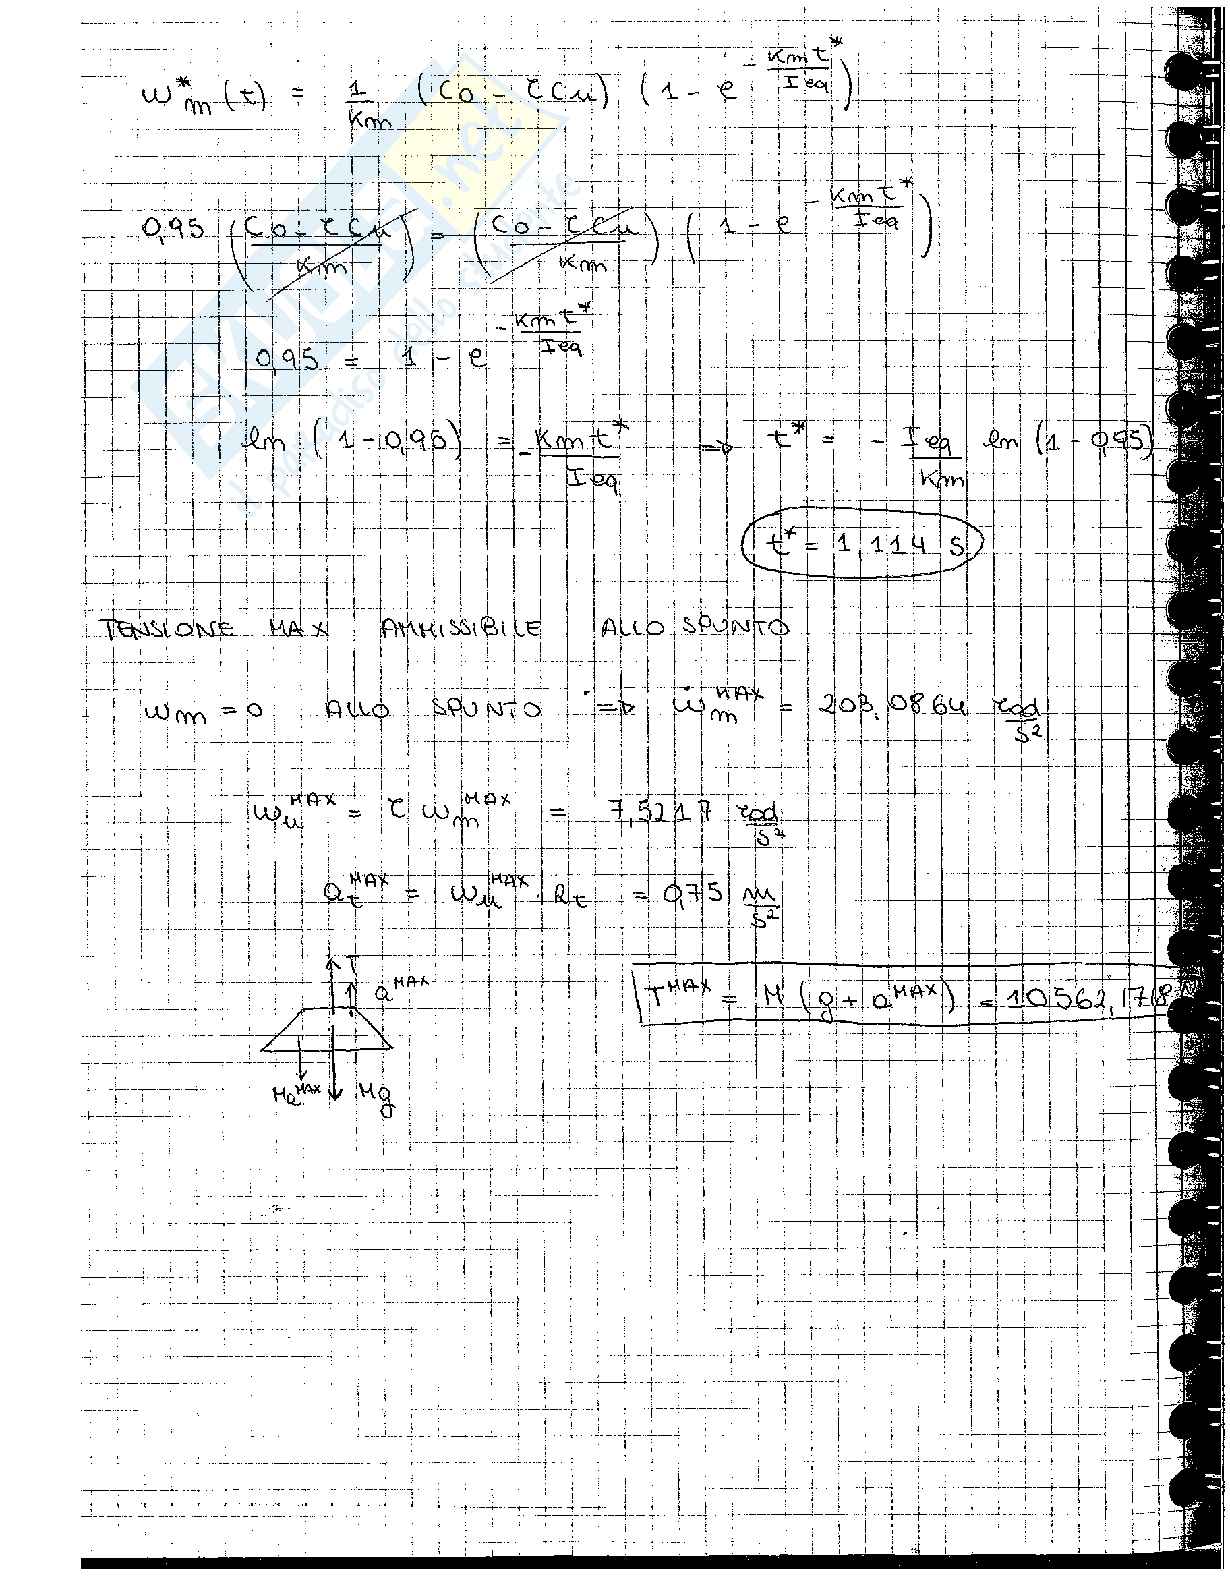 ω*m (t) = 1/Km (Co - τCu) (1 - e^(-Km t*/Ieq))
0,95 ((Co - τCu)/Km) = ((Co - τCu)/Km) (1 - e^(-Km t*/Ieq))
0,95 = 1 - e^(-Km t*/Ieq)
ln (1-0,95) = -Km t*/Ieq ⇒ t* = - Ieq/Km ln (1-0,95)
t* = 1,114 s
TENSIONE MAX AMMISSIBILE ALLO SPUNTO
ωm = 0 ALLO SPUNTO ⇒ ω̇m^MAX = 203,0864 rad/s²
ωu^MAX = τ ωm^MAX = 7,5217 rad/s²
at^MAX = ωu^MAX · Rt = 0,75 m/s²
T
a^MAX
T^MAX = M (g + a^MAX) = 10562,178 N
Ma^MAX Mg